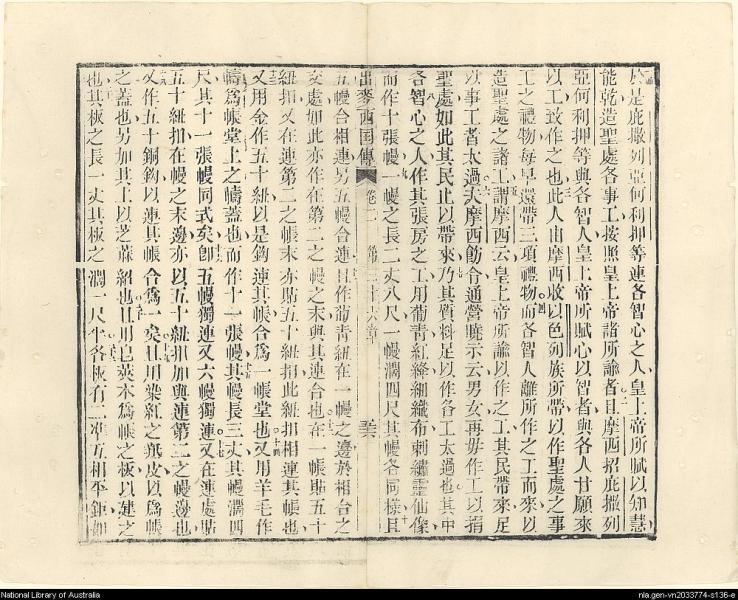 於是庇撒列亞何利押等連各智心之人皇上帝所賦以知慧
能乾造聖處各事工按照皇上帝諸所諭者且摩西招庇撒列
亞何利押等與各智人皇上帝所賦心以智者與各人甘願來
以工致作之也此人由摩西收以色列族所帶以作聖處之事
工之禮物每早還帶三項禮物而各智人離所作之工而來以
造聖處之諸工謂摩西云皇上帝所諭以作之工其民帶來足
以事工者太過矣摩西飭令通營曉示云男女再毋作工以捐
聖處如此其民止以帶來乃其質料足以作各工太過也其中
各智心之人作其張房之工用葡青紅絛細織布刺繡靈仙像
而作十張幔一幔之長二丈八尺一幔濶四尺其幔各同樣且
出麥西国傳 卷二 第三十六章
五幔合相連另五幔合連且作葡青紐在一幔之邊於相合之
交處如此亦作在第二之幔之末與其連合也在一帳貼五十
紐扣又在連第二之帳末亦貼五十紐扣此紐扣相連其帳也
又用金作五十紐以是鈎連其帳合爲一帳堂也又用羊毛作
幬爲帳堂上之幬蓋也而作十一張幔其幔長三丈其幔濶四
尺其十一張幔同式矣卽五幔獨連又六幔獨連又在連處貼
五十紐扣在幔之末邊亦以五十紐扣加與連第二之幔邊也
又作五十銅鈎以連其帳合爲一矣且用染紅之羝皮以爲帳
之蓋也另加其上以芝蔴紹也且用皂莢木爲帳之板以建之
也其板之長一丈其板之濶一尺半各板有二凖互相平距如
National Library of Australia
nla.gen-vn2033774-s136-e